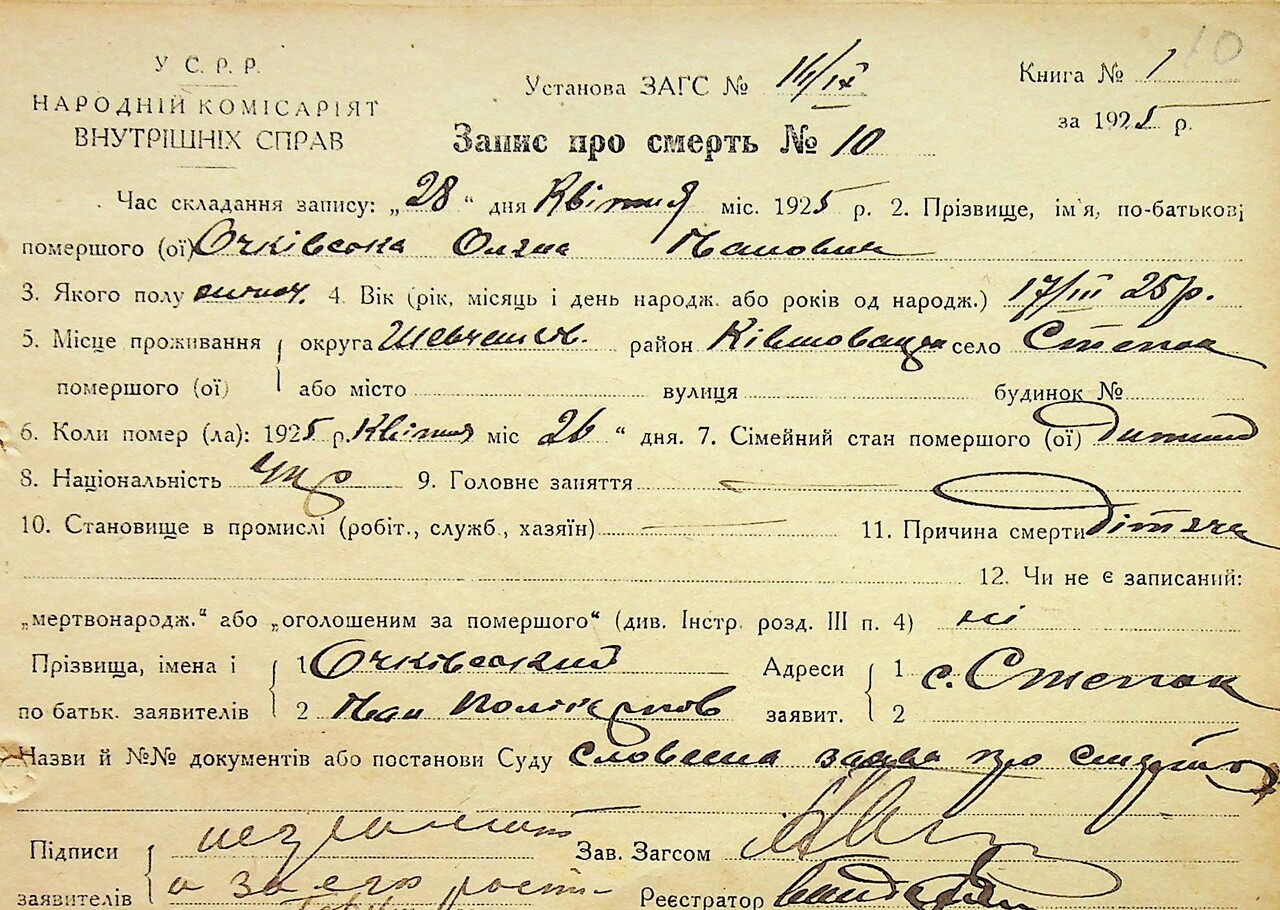 10
У С. Р. Р.
НАРОДНІЙ КОМІСАРІЯТ
ВНУТРІШНІХ СПРАВ
Установа ЗАГС № 14/IX
Книга № 1
за 1925 р.
Запис про смерть № 10
Час складання запису: „28“ дня Квітня міс. 1925 р. 2. Прізвище, ім'я, по-батькові
помершого (ої) Очківська Ольга
3. Якого полу 4. Вік (рік, місяць і день народж. або років од народж.) 17/III 25р.
5. Місце проживання округа Шевченків. район село Степок
помершого (ої) або місто вулиця будинок №
6. Коли помер (ла): 1925 р. Квітня міс 26 “ дня. 7. Сімейний стан помершого (ої) дитина
8. Національність Укр 9. Головне заняття
10. Становище в промислі (робіт., служб., хазяїн) 11. Причина смерти дітяча
12. Чи не є записаний:
„мертвонародж.“ або „оголошеним за помершого“ (див. Інстр. розд. III п. 4) ні
Прізвища, імена і 1 Очківський Адреси 1 с. Степок
по батьк. заявителів 2 Іван Полікарпов заявит. 2
Назви й №№ документів або постанови Суду словесна заява про смерть
Підписи Зав. Загсом
заявителів а за его Реєстратор